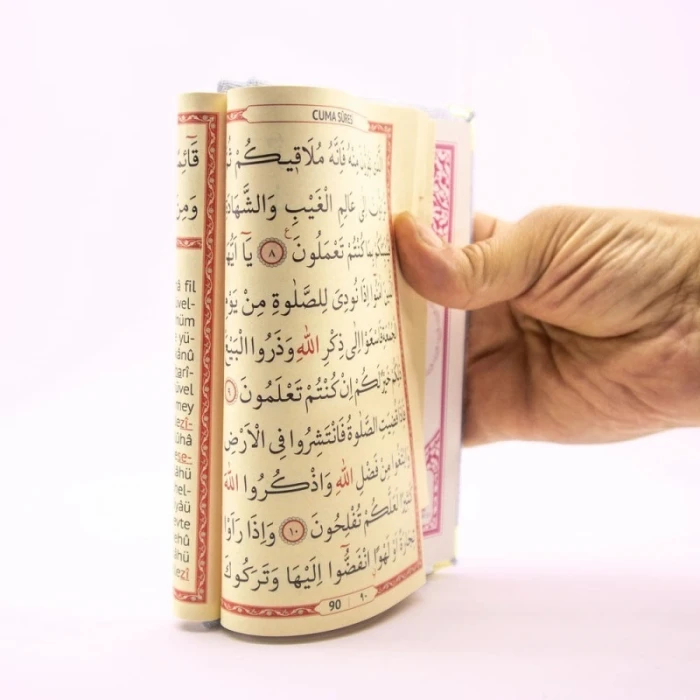 CUMA SÛRES
مِنْهُ فَاِنَّهُ مُلَاق۪يكُمْ
اِلٰى عَالِمِ الْغَيْبِ وَالشَّهَادَ
كُنْتُمْ تَعْمَلُونَ ﴿٨﴾ يَٓا اَيُّهَا
اٰمَنُٓوا اِذَا نُودِيَ لِلصَّلٰوةِ مِنْ يَوْمِ
فَاسْعَوْا اِلٰى ذِكْرِ اللّٰهِ وَذَرُوا الْبَيْعَ
خَيْرٌ لَكُمْ اِنْ كُنْتُمْ تَعْلَمُونَ ﴿٩﴾
قُضِيَتِ الصَّلٰوةُ فَانْتَشِرُوا فِي الْاَرْضِ
وَابْتَغُوا مِنْ فَضْلِ اللّٰهِ وَاذْكُرُوا اللّٰهَ
لَعَلَّكُمْ تُفْلِحُونَ ﴿١٠﴾ وَاِذَا رَاَوْا
تِجَارَةً اَوْ لَهْوًاۨ انْفَضُّٓوا اِلَيْهَا وَتَرَكُوكَ
90 ٩٠
قَٓائِمً
وَمِنَ
â fil
vel-
hüm
yü-
ânû
tarî-
üvel
mey
ezî-
ühâ
ese-
âhü
nel-
yâü
eyte
ehû
âhü
ezî